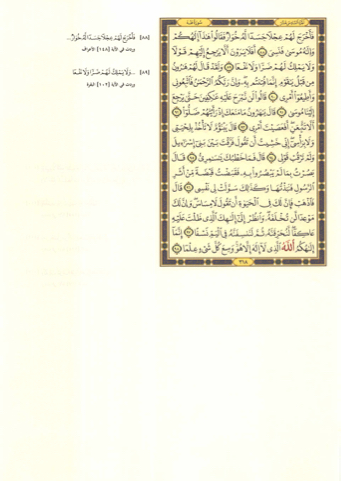 سورة طه
فَأَخْرَجَ لَهُمْ عِجْلًا جَسَدًا لَّهُ خُوَارٌ فَقَالُوا هَٰذَا إِلَٰهُكُمْ
وَإِلَٰهُ مُوسَىٰ فَنَسِيَ ٨٨ أَفَلَا يَرَوْنَ أَلَّا يَرْجِعُ إِلَيْهِمْ قَوْلًا
وَلَا يَمْلِكُ لَهُمْ ضَرًّا وَلَا نَفْعًا ٨٩ وَلَقَدْ قَالَ لَهُمْ هَٰرُونُ
مِن قَبْلُ يَٰقَوْمِ إِنَّمَا فُتِنتُم بِهِۦ وَإِنَّ رَبَّكُمُ الرَّحْمَٰنُ فَاتَّبِعُونِي
وَأَطِيعُوا أَمْرِي ٩٠ قَالُوا لَن نَّبْرَحَ عَلَيْهِ عَٰكِفِينَ حَتَّىٰ يَرْجِعَ
إِلَيْنَا مُوسَىٰ ٩١ قَالَ يَٰهَٰرُونُ مَا مَنَعَكَ إِذْ رَأَيْتَهُمْ ضَلُّوا ٩٢
أَلَّا تَتَّبِعَنِ أَفَعَصَيْتَ أَمْرِي ٩٣ قَالَ يَبْنَؤُمَّ لَا تَأْخُذْ بِلِحْيَتِي
وَلَا بِرَأْسِي إِنِّي خَشِيتُ أَن تَقُولَ فَرَّقْتَ بَيْنَ بَنِي إِسْرَٰٓءِيلَ
وَلَمْ تَرْقُبْ قَوْلِي ٩٤ قَالَ فَمَا خَطْبُكَ يَٰسَٰمِرِيُّ ٩٥ قَالَ
بَصُرْتُ بِمَا لَمْ يَبْصُرُوا بِهِۦ فَقَبَضْتُ قَبْضَةً مِّنْ أَثَرِ
الرَّسُولِ فَنَبَذْتُهَا وَكَذَٰلِكَ سَوَّلَتْ لِي نَفْسِي ٩٦ قَالَ
فَاذْهَبْ فَإِنَّ لَكَ فِي الْحَيَوٰةِ أَن تَقُولَ لَا مِسَاسَ وَإِنَّ لَكَ
مَوْعِدًا لَّن تُخْلَفَهُۥ وَانظُرْ إِلَىٰ إِلَٰهِكَ الَّذِي ظَلْتَ عَلَيْهِ
عَاكِفًا لَّنُحَرِّقَنَّهُۥ ثُمَّ لَنَنسِفَنَّهُۥ فِي الْيَمِّ نَسْفًا ٩٧ إِنَّمَا
إِلَٰهُكُمُ اللَّهُ الَّذِي لَا إِلَٰهَ إِلَّا هُوَ وَسِعَ كُلَّ شَيْءٍ عِلْمًا ٩٨
٣١٨
[٨٨] فَأَخْرَجَ لَهُمْ عِجْلًا جَسَدًا لَّهُ خُوَارٌ...
وردت في الآية [١٤٨] الأعراف
[٨٩] ...وَلَا يَمْلِكُ لَهُمْ ضَرًّا وَلَا نَفْعًا
وردت في الآية